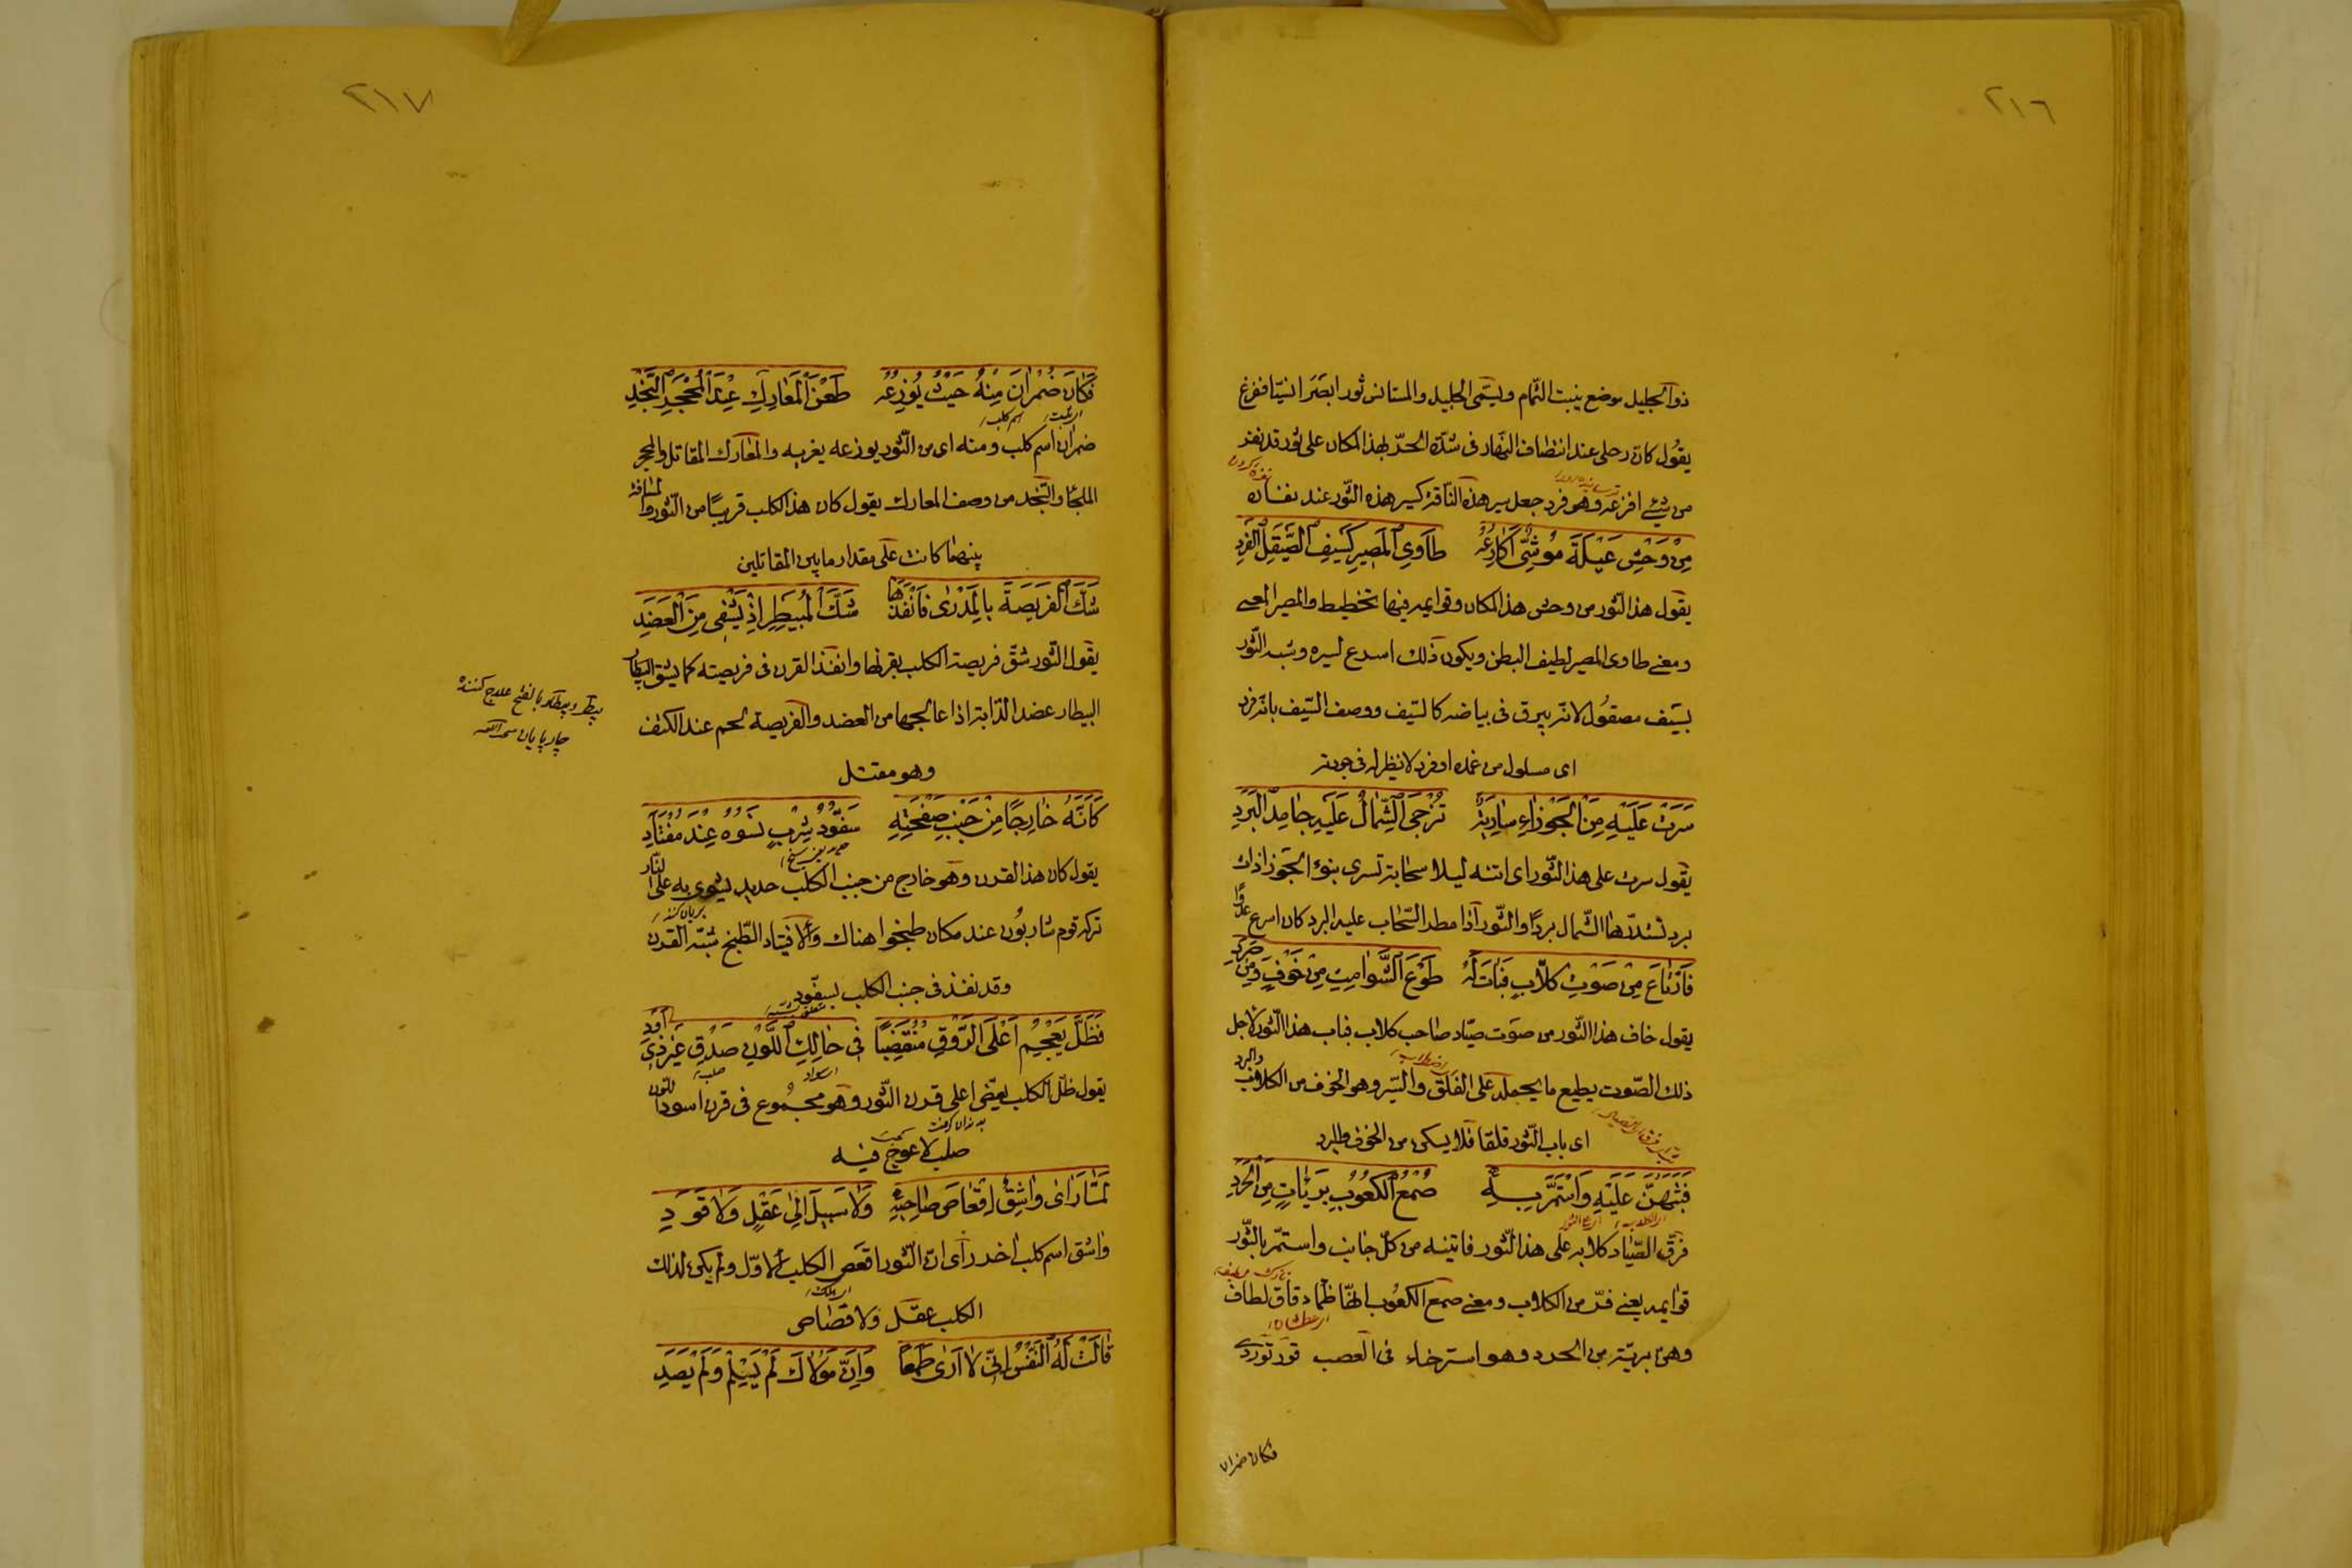 ٢١٦
ذو الجليل موضع ينبت الثمام ويسمى الجليل والمستانس ثور ابصر انيسا ففزع
يقول كان رحلى عند انتصاف النهار فى شدة الحر بهذا المكان على ثور قد نفر
من شئ افزعه وهو فرد جعل سير هذه الناقة كسير هذه الثور عند نفاره
مِنْ وَحْشِ عَيْلَةَ مُوشِىٍّ اَكَارِعُهُ طَاوِى الْمَصِيرِ كَسَيْفِ الصَّيْقَلِ الْفَرِدِ
يقول هذا الثور من وحش هذا المكان وقوايمه فيها تخطيط والمصير المعى
ومعنى طاوى المصير لطيف البطن ويكون ذلك اسرع لسيره وشبه الثور
بسيف مصقول لانه يبرق فى بياضه كالسيف ووصف السيف بانه فرد
اى مسلول من غمده او فرد لا نظير له فى جودته
سَرَتْ عَلَيْهِ مِنَ الْجَوْزَاءِ سَارِيَةٌ تُزْجِى الشِّمَالُ عَلَيْهِ جَامِدَ الْبَرَدِ
يقول سرت على هذا الثور اى اتته ليلا سحابة تسرى بنوء الجوزا ذات
برد تشدها الشمال بردا والثور اذا مطر السحاب عليه البرد كان اسرع عدوا
فَارْتَاعَ مِنْ صَوْتِ كَلَّابٍ فَبَاتَ لَهُ طَوْعَ الشَّوَامِتِ مِنْ خَوْفٍ وَمِنْ صَرَدِ
يقول خاف هذا الثور من صوت صياد صاحب كلاب فبات هذا الثور لاجل
ذلك الصوت يطيع ما يحمله على القلق والسير وهو الخوف من الكلاب والبرد
اى بات الثور قلقا فلا يسكن من الخوف والبرد
فَبَثَّهُنَّ عَلَيْهِ وَاسْتَمَرَّ بِهِ صُمْعُ الْكُعُوبِ بَرِيَّاتٍ مِنَ الْحَرَدِ
فرق الصياد كلابه على هذا الثور فاتينه من كل جانب واستمر بالثور
قوايمه يعنى فر من الكلاب ومعنى صمع الكعوب انها ظماء دقاق لطاف
وهى برية من الحرد وهو استرخاء فى العصب
فكان ضمران
٢١٧
فَكَانَ ضُمْرَانُ مِنْهُ حَيْثُ يُوزِعُهُ طَعْنَ الْمَعَارِكِ عِنْدَ الْمُحْجَرِ النَّجُدِ
اسم كلب
ضمران اسم كلب ومنه اى من الثور يوزعه يغريه والمعارك المقاتل والمحجر
الملجأ والنجد من وصف المعارك يقول كان هذا الكلب قريبا من الثور والمسافة
بينهما كانت على مقدار ما بين المقاتلين
شَكَّ الْفَرِيصَةَ بِالْمِدْرٰى فَاَنْفَذَهَا شَكَّ الْمُبَيْطِرِ اِذْ يَشْفِى مِنَ الْعَضَدِ
يقول الثور شق فريصة الكلب بقرنها وانفذ القرن فى فريصته كما يشق البيطار
البيطار عضد الدابة اذا عالجها من العضد والفريصة لحم عند الكتف
بيطر وبيطار بالفتح علاج كننده
چارپايان
وهو مقتل
كَاَنَّهُ خَارِجًا مِنْ جَنْبِ صَفْحَتِهِ سَفُّودُ شَرْبٍ نَسَوْهُ عِنْدَ مُفْتَاَدِ
يقول كان هذا القرن وهو خارج من جنب الكلب حديد يشوى به على النار
تركه قوم شاربون عند مكان طبخوا هناك والافتياد الطبخ شبه القرن
وقد نفذ فى جنب الكلب بسفود
فَظَلَّ يَعْجُمُ اَعْلَى الرَّوْقِ مُنْقَبِضًا فِى حَالِكِ اللَّوْنِ صَدْقٍ غَيْرِ ذِى اَوَدِ
يقول ظل الكلب يعض اعلى قرن الثور وهو مجموع فى قرن اسود اللون
صلب لا عوج فيه
لَمَّا رَاٰى وَاشِقٌ اِقْعَاصَ صَاحِبِهِ وَلَا سَبِيلَ اِلٰى عَقْلٍ وَلَا قَوَدِ
واشق اسم كلب اخر راى ان الثور اقعص الكلب الاول ولم يكن لذلك
الكلب عقل ولا قصاص
قَالَتْ لَهُ النَّفْسُ اِنِّى لَا اَرٰى طَمَعًا وَاِنَّ مَوْلَاكَ لَمْ يَسْلَمْ وَلَمْ يَصِدِ